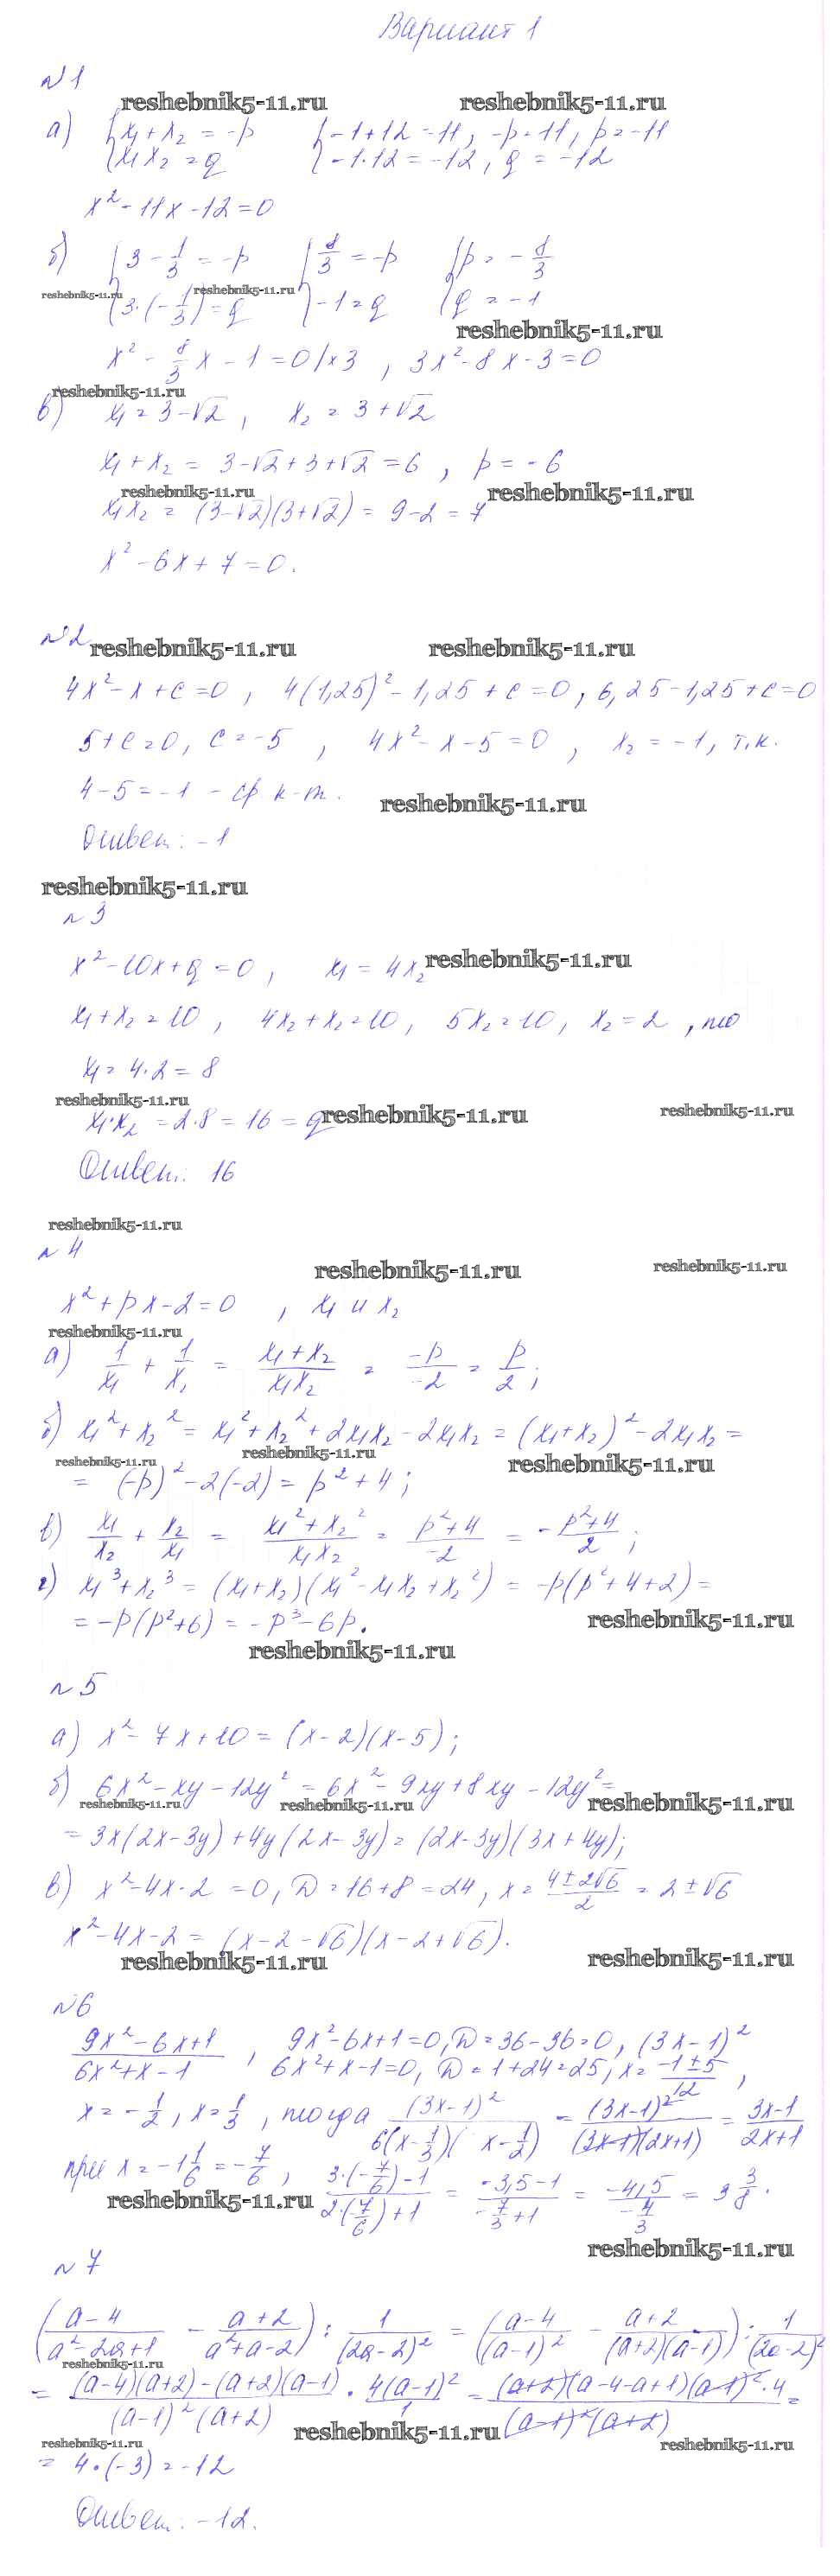 Вариант 1
№1
reshebnik5-11.ru reshebnik5-11.ru
а) {x₁ + x₂ = -p {-1 + 12 = 11, -p = 11, p = -11
{x₁x₂ = q {-1·12 = -12, q = -12
x² - 11x - 12 = 0
б) {3 - 1/3 = -p {8/3 = -p {p = -8/3
reshebnik5-11.ru reshebnik5-11.ru
{3·(-1/3) = q {-1 = q {q = -1
reshebnik5-11.ru
x² - 8/3 x - 1 = 0 | ×3 , 3x² - 8x - 3 = 0
reshebnik5-11.ru
в) x₁ = 3 - √2 , x₂ = 3 + √2
x₁ + x₂ = 3 - √2 + 3 + √2 = 6 , p = -6
reshebnik5-11.ru reshebnik5-11.ru
x₁x₂ = (3 - √2)(3 + √2) = 9 - 2 = 7
x² - 6x + 7 = 0.
№2
reshebnik5-11.ru reshebnik5-11.ru
4x² - x + c = 0 , 4(1,25)² - 1,25 + c = 0 , 6,25 - 1,25 + c = 0
5 + c = 0, c = -5 , 4x² - x - 5 = 0 , x₂ = -1, т.к.
4 - 5 = -1 - ср. к-т.
reshebnik5-11.ru
Ответ: -1
reshebnik5-11.ru
№3
x² - 10x + q = 0 , x₁ = 4x₂
reshebnik5-11.ru
x₁ + x₂ = 10 , 4x₂ + x₂ = 10, 5x₂ = 10, x₂ = 2 , то
x₁ = 4·2 = 8
reshebnik5-11.ru
x₁·x₂ = 2·8 = 16 = q
reshebnik5-11.ru reshebnik5-11.ru
Ответ: 16
reshebnik5-11.ru
№4
reshebnik5-11.ru reshebnik5-11.ru
x² + px - 2 = 0 , x₁ и x₂
reshebnik5-11.ru
а) 1/x₁ + 1/x₁ = (x₁ + x₂)/(x₁x₂) = -p/-2 = p/2 ;
б) x₁² + x₂² = x₁² + x₂² + 2x₁x₂ - 2x₁x₂ = (x₁ + x₂)² - 2x₁x₂ =
reshebnik5-11.ru reshebnik5-11.ru reshebnik5-11.ru
= (-p)² - 2(-2) = p² + 4 ;
в) x₁/x₂ + x₂/x₁ = (x₁² + x₂²)/(x₁x₂) = (p² + 4)/-2 = -(p² + 4)/2 ;
г) x₁³ + x₂³ = (x₁ + x₂)(x₁² - x₁x₂ + x₂²) = -p(p² + 4 + 2) =
= -p(p² + 6) = -p³ - 6p.
reshebnik5-11.ru
reshebnik5-11.ru
№5
а) x² - 7x + 10 = (x - 2)(x - 5) ;
б) 6x² - xy - 12y² = 6x² - 9xy + 8xy - 12y² =
reshebnik5-11.ru reshebnik5-11.ru reshebnik5-11.ru
= 3x(2x - 3y) + 4y(2x - 3y) = (2x - 3y)(3x + 4y);
в) x² - 4x - 2 = 0, D = 16 + 8 = 24 , x = (4 ± 2√6)/2 = 2 ± √6
x² - 4x - 2 = (x - 2 - √6)(x - 2 + √6).
reshebnik5-11.ru reshebnik5-11.ru
№6
(9x² - 6x + 1)/(6x² + x - 1) , 9x² - 6x + 1 = 0, D = 36 - 36 = 0, (3x - 1)²
6x² + x - 1 = 0, D = 1 + 24 = 25, x = (-1 ± 5)/12 ,
x = -1/2 , x = 1/3 , тогда (3x - 1)²/(6(x - 1/3)(x - 1/2)) = (3x - 1)²/((3x - 1)(2x + 1)) = (3x - 1)/(2x + 1)
при x = -1 1/6 = -7/6 , (3·(-7/6) - 1)/(2·(-7/6) + 1) = (-3,5 - 1)/(-7/3 + 1) = -4,5/(-4/3) = 3 3/8 .
reshebnik5-11.ru
reshebnik5-11.ru
№7
((a - 4)/(a² - 2a + 1) - (a + 2)/(a² + a - 2)) : 1/(2a - 2)² = ((a - 4)/(a - 1)² - (a + 2)/((a + 2)(a - 1))) : 1/(2a - 2)²
reshebnik5-11.ru
= ((a - 4)(a + 2) - (a + 2)(a - 1))/((a - 1)²(a + 2)) · 4(a - 1)²/1 = ((a + 2)(a - 4 - a + 1)(a - 1)²·4)/((a - 1)²(a + 2)) =
reshebnik5-11.ru
reshebnik5-11.ru reshebnik5-11.ru
= 4·(-3) = -12
Ответ: -12.